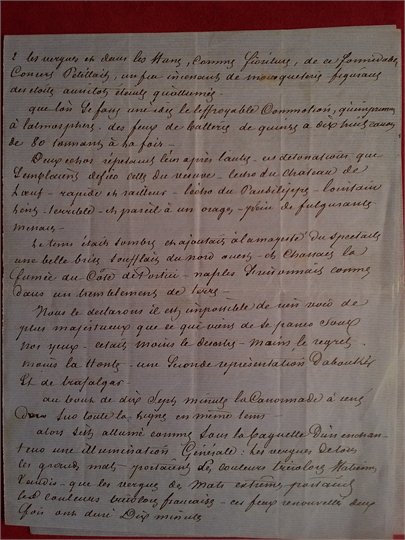 2 les vergues et dans les Huns, comme fioriture, de ce formidable
Concert Petillait, un feu incessant de mousqueterie figurant
des etoiles aussitot eteints qu'allumés.
que l'on se fasse une idée de l'effroyable Commotion, qu'imprimer
à l'atmosphère. des feux de batterie de quinze à dix huit canons
de 80 tonnant à la fois.
Deux echos répetaient l'un après l'autre. ces detonations que
l'echo du Chateau de
L'œuf. rapide et railleur. l'echo du Pausilippe. lointain
terrible et pareil à un orage, plein de fulgurants
Le tems etait sombre et ajoutait à la majesté du spectacle
une belle brise soufflait du nord ouest. et Chassait la
fumée du Côté de Portici. naples frissonnait comme
dans un tremblement de terre.
Nous le declarons il est impossible de rien voir de
plus majestueux que ce qui vient de se passer sous
nos yeux. c'etait moins le desastre. moins le regret.
moins la Honte. une seconde représentation d'aboukir
Et de trafalgar
au bout de dix Sept minutes la Canonnade à cessé
Sur toute la ligne en même tems.
alors s'est allumé comme sous la baguette D'un enchan
teur une illumination Générale: Les vergues de tous
les grands mats portaient les couleurs tricolores Italiennes
tandis que les vergues des mats extrêmes portaient
les couleurs tricolores françaises. ces feux renouvellés deux
fois ont duré Dix minutes